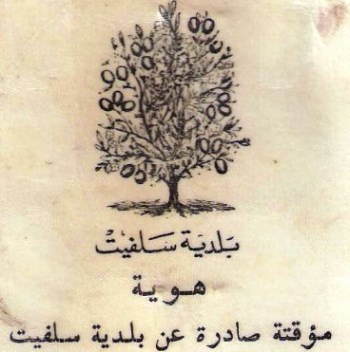 بلدية سلفيت
هوية
مؤقتة صادرة عن بلدية سلفيت